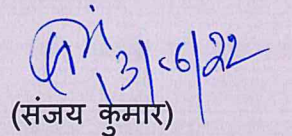 13/06/22
(संजय कुमार)